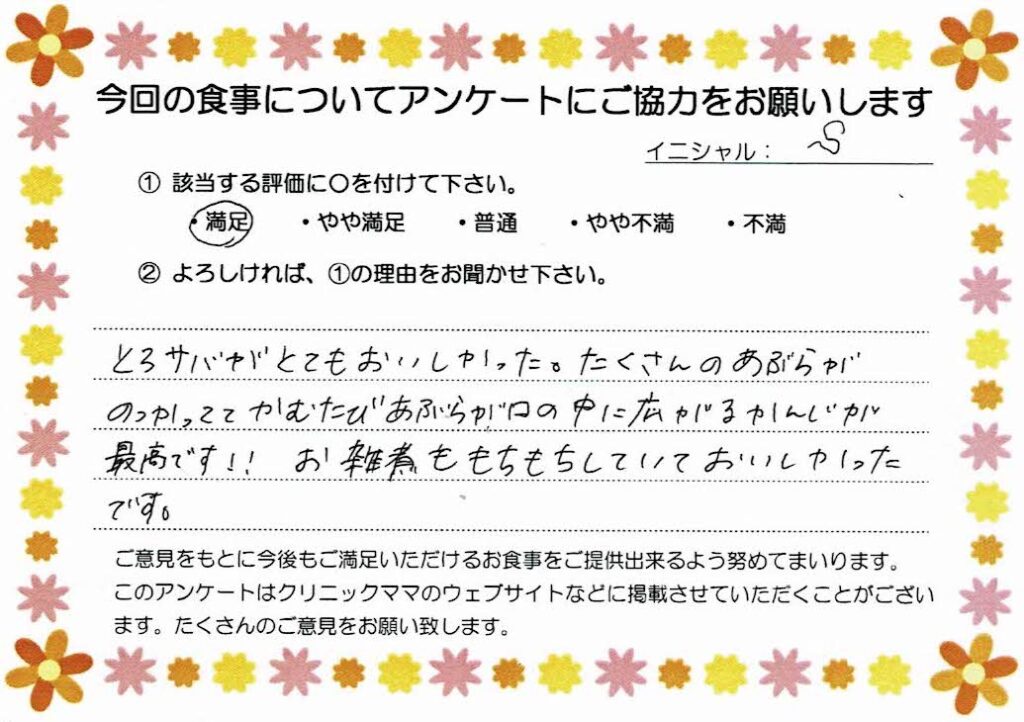 今回の食事についてアンケートにご協力をお願いします
イニシャル： S
① 該当する評価に〇を付けて下さい。
・満足 ・やや満足 ・普通 ・やや不満 ・不満
② よろしければ、①の理由をお聞かせ下さい。
とろサバがとてもおいしかった。たくさんのあぶらが
のっかっててかむたびあぶらが口の中に広がるかんじが
最高です!! お雑煮ももちもちしていておいしかった
です。
ご意見をもとに今後もご満足いただけるお食事をご提供出来るよう努めてまいります。
このアンケートはクリニックママのウェブサイトなどに掲載させていただくことがござい
ます。たくさんのご意見をお願い致します。